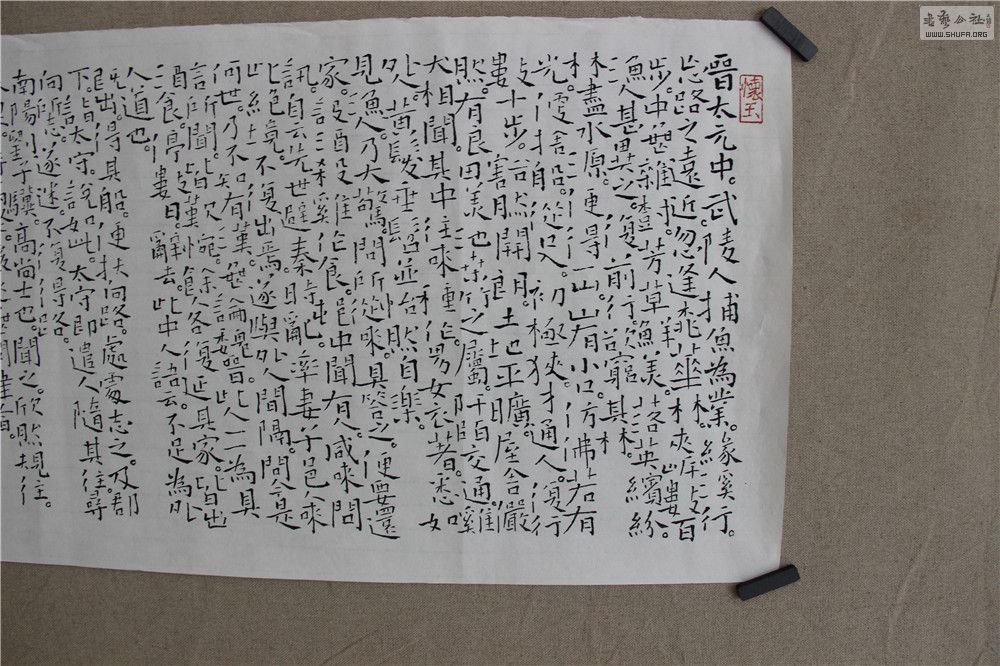 書藝公社
WWW.SHUFA.ORG
懷玉
晉太元中。武陵人捕魚為業。緣溪行。
忘路之遠近忽逢桃華林。夾岸數百
步。中無雜樹。芳草鮮美。落英繽紛。
漁人甚異之。復前行欲窮其林。
林盡水原。便得一山。山有小口。仿佛若有
光。便舍船。從口入。初極狹。才通人。復行
數十步。豁然開朗。土地平曠。屋舍嚴
然。有良田美池桑竹之屬。阡陌交通。雞
犬相聞。其中往來種作。男女衣著。悉如
外人。黃髮垂髫。並怡然自樂。
見漁人乃大驚。問所從來。具答之。便要還
家。設酒殺雞作食。邑中聞有人。咸來問
訊。自云先世避秦時亂。率妻子邑人來
此絕境。不復出焉。遂與外人間隔。問今是
何世。乃不知有漢。無論魏晉。此人一一為具
言所聞。皆歎惋。餘人各復延其家。皆出
酒食。停數日。辭去。此中人語云。不足為外
人道也。
既出。得其船。便扶向路。處處志之。及郡
下。詣太守。說如此。太守即遣人隨其往尋
向所志。遂迷。不復得路。
南陽劉子驥。高尚士也。聞之。欣然規往。